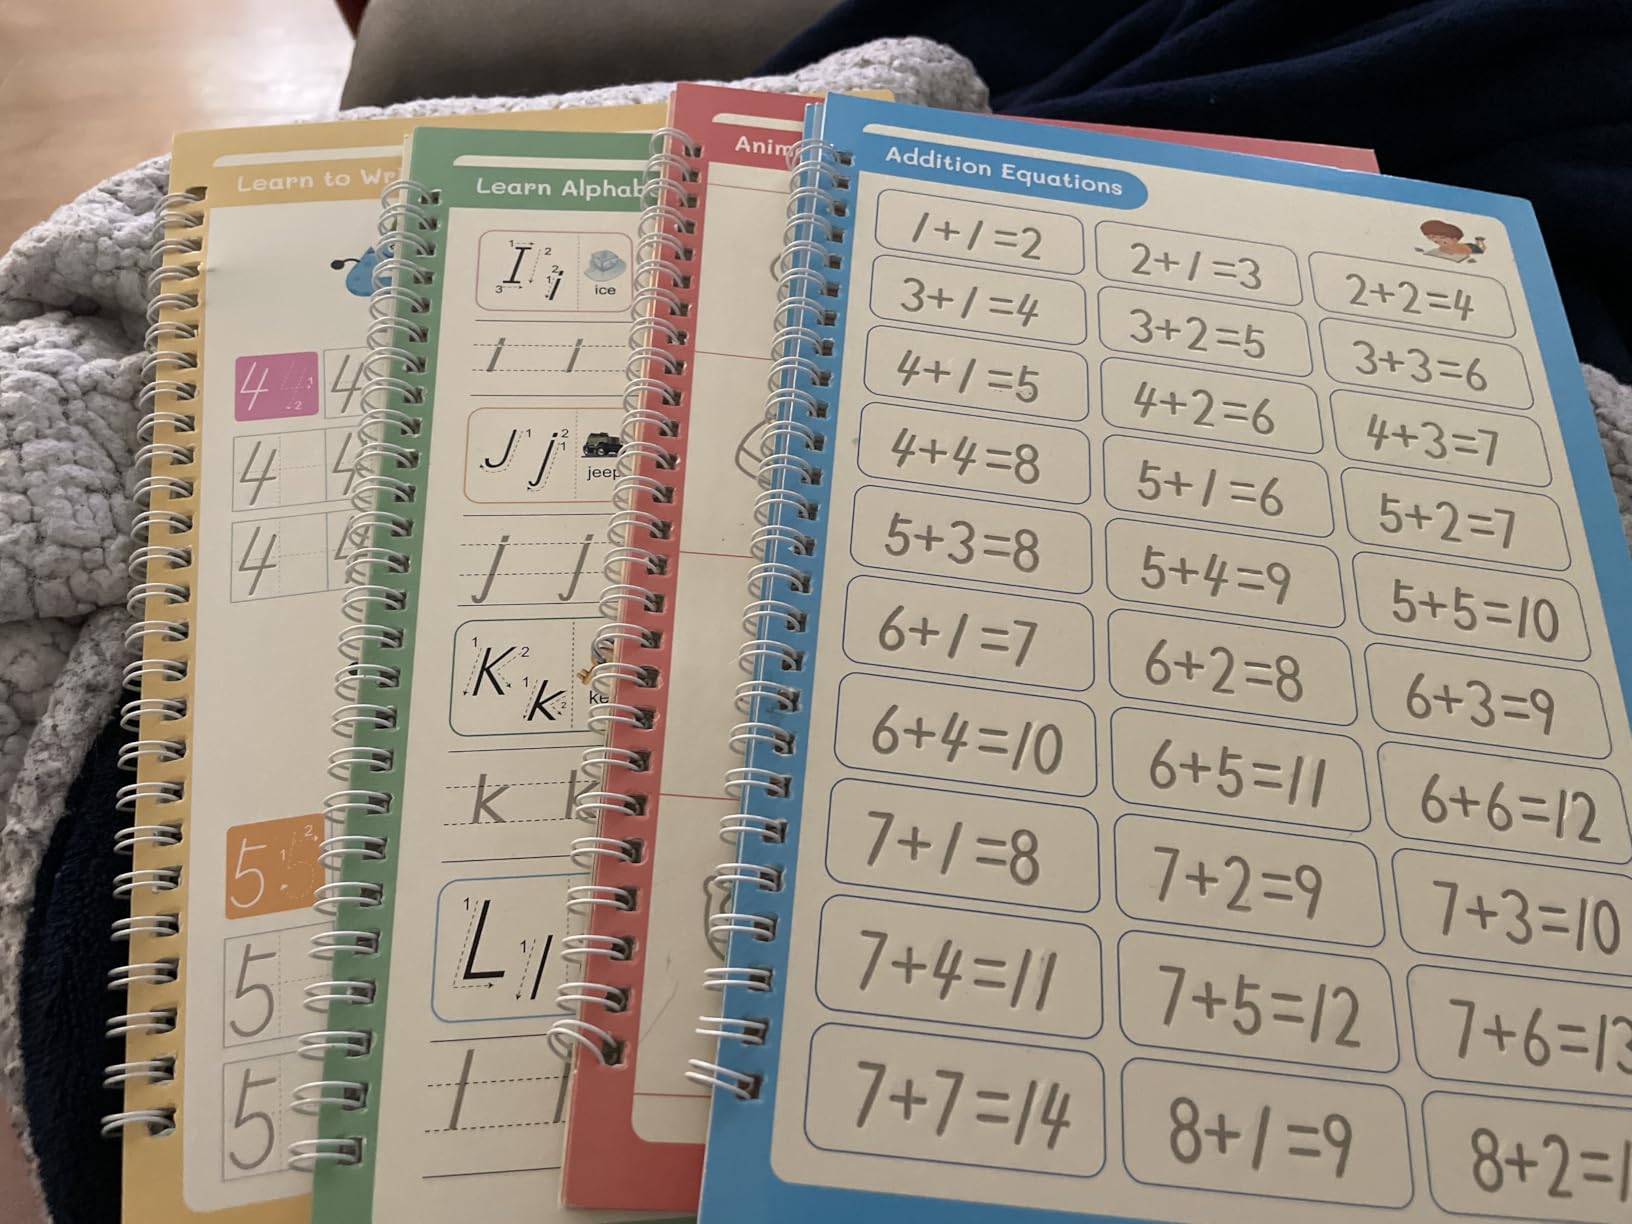 Learn to
4 4
4 4
4 4
5
5
5
Learn Alphab
I i
ice
i i
J j
jeep
j j
K k
ke
k k
L l
l l
Anim
Addition Equations
1+1=2 2+1=3 2+2=4
3+1=4 3+2=5 3+3=6
4+1=5 4+2=6 4+3=7
4+4=8 5+1=6 5+2=7
5+3=8 5+4=9 5+5=10
6+1=7 6+2=8 6+3=9
6+4=10 6+5=11 6+6=12
7+1=8 7+2=9 7+3=10
7+4=11 7+5=12 7+6=13
7+7=14 8+1=9 8+2=1